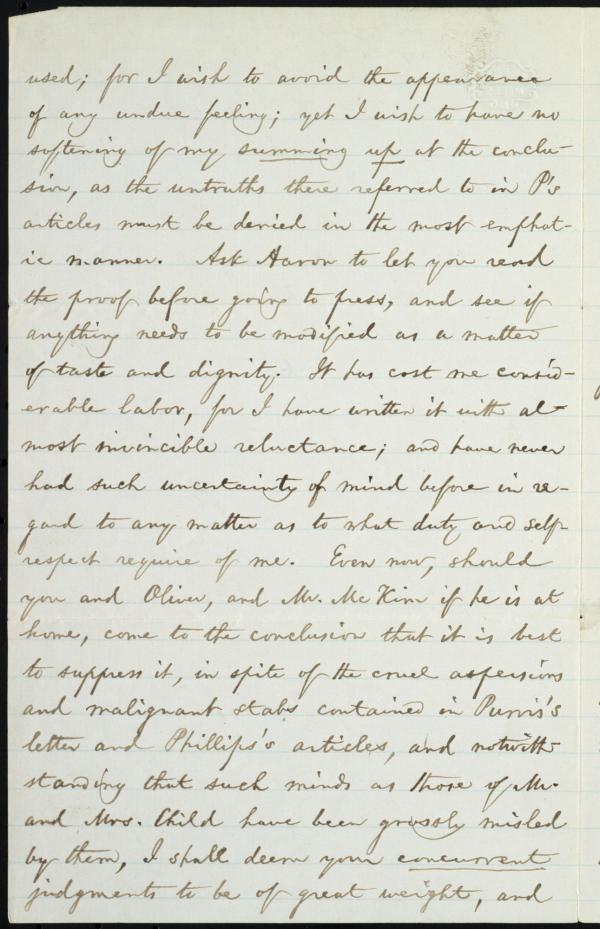 used; for I wish to avoid the appearance
of any undue feeling; yet I wish to have no
softening of my summing up at the conclu-
sion, as the untruths there referred to in P's
articles must be denied in the most emphat-
ic manner. Ask Aaron to let you read
the proof before going to press, and see if
anything needs to be modified as a matter
of taste and dignity. It has cost me consid-
erable labor, for I have written it with al-
most invincible reluctance; and have never
had such uncertainty of mind before in re-
gard to any matter as to what duty and self-
respect require of me. Even now, should
you and Oliver, and Mr. McKim if he is at
home, come to the conclusion that it is best
to suppress it, in spite of the cruel aspersions
and malignant stabs contained in Purvis's
letter and Phillips's articles, and notwith-
standing that such minds as those of Mr.
and Mrs. Child have been grossly misled
by them, I shall deem your concurrent
judgments to be of great weight, and